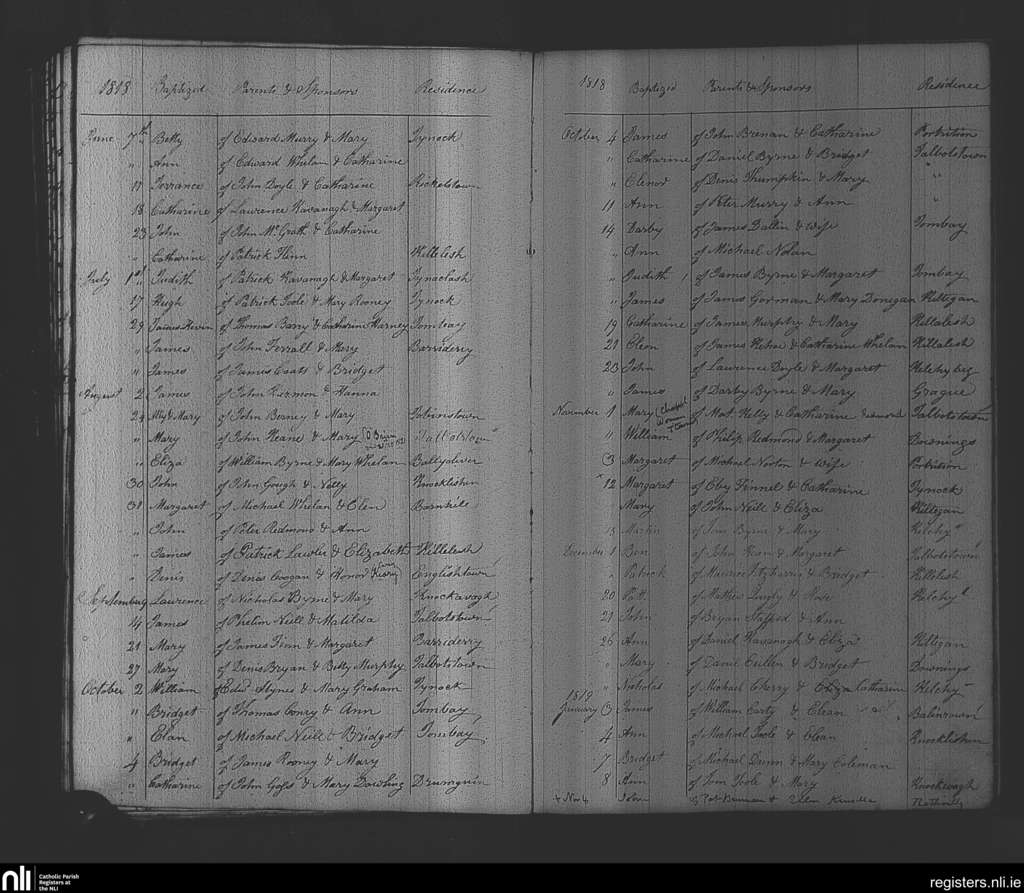 1818 Baptized Parents & Sponsors Residence
June 7th Betty of Edward Murry & Mary Tynock
" Ann of Edward Whelan & Catharine
17 Terrance of John Doyle & Catharine Rickelstown
18 Catharine of Laurence Kavanagh & Margaret
23 John of John McGrath & Catharine
" Catharine of Patrick Flinn Killelesh
July 1st Judith of Patrick Kavanagh & Margaret Tynaclash
17 Hugh of Patrick Toole & Mary Rooney Tynock
29 James Kevin of Thomas Barry & Catharine Harney Tombay
" James of John Ferrall & Mary Barridery
" James of James Coats & Bridget
August 2 James of John & Hanna
24 Ally & Mary of John & Mary Tobinstown
" Mary of John Keane & Mary O Brien Talbotstown
" Eliza of William Byrne & Mary Whelan
30 John of John Gough & Nelly Knocklishin
31 Margaret of Michael Whelan & Elen Barnhill
" John of Peter Redmond & Ann
" James of Patrick Lawler & Elizabeth Killelesh
" Denis of Denis Coogan & Honor Englishtown
September Laurence of Nicholas Byrne & Mary Knockavagh
14 James of Phelim Neill & Matilda Talbotstown
21 Mary of James Finn & Margaret Barriderry
27 Mary of Denis Bryan & Betty Murphy Talbotstown
October 2 William of Edwd & Mary Graham Tynock
" Bridget of Thomas Conry & Ann Tombay
" Elan of Michael Neill & Bridget Tombay
4 Bridget of James Rooney & Mary
" Catharine of John Goss & Mary Dowling Drumguin
1818 Baptized Parents & Sponsors Residence
October 4 James of John Brenan & Catharine Portrition
" Catharine of Daniel Byrne & Bridget Talbotstown
" Elenor of Denis Thumpkin & Mary "
11 Ann of Peter Murry & Ann "
14 Darby of James Ballin & wife Tombay
" Ann of Michael Nolan
" Judith of James Byrne & Margaret Tombay
" James of James Gorman & Mary Donegan Killegan
19 Catharine of James Murphy & Mary Killalesh
21 Elen of James Kehoe & Catharine Whelan Killalesh
23 John of Laurence Doyle & Margaret Kelchybeg
" James of Darby Byrne & Mary Grague
November 1 Mary of Mat. Kelly & Catharine Redmond Talbotstown
" William of Philip Redmond & Margaret Downings
3 Margaret of Michael Norton & wife Portrition
12 Margaret of Eby Finnel & Catharine Tynock
Mary of John Neill & Eliza Killegan
15 Martin of Byrne & Mary Kelchy
December 1 Ben of John & Margaret Talbotstown
" Patrick of Maurice Fitzharris & Bridget Killelish
20 Patt. of Mathew & Rose Kelchy
21 John of Bryan Stafford & Ann
26 Ann of Daniel Kavanagh & Eliza Killegan
" Mary of Daniel Cullen & Bridget Downings
" Nicholas of Michael Cherry & Eliza Catharine Kelchy
1819
January 3 James of William Carty & Elean
4 Ann of Michael Toole & Elean Knocklishin
7 Bridget of Michael Dunn & Mary Coleman
8 Ann of Toole & Mary Knockevagh
+ Nov 4 John of Pat Brennan & Ellen Kinsella
nli
Catholic Parish
Registers at
the NLI
registers.nli.ie